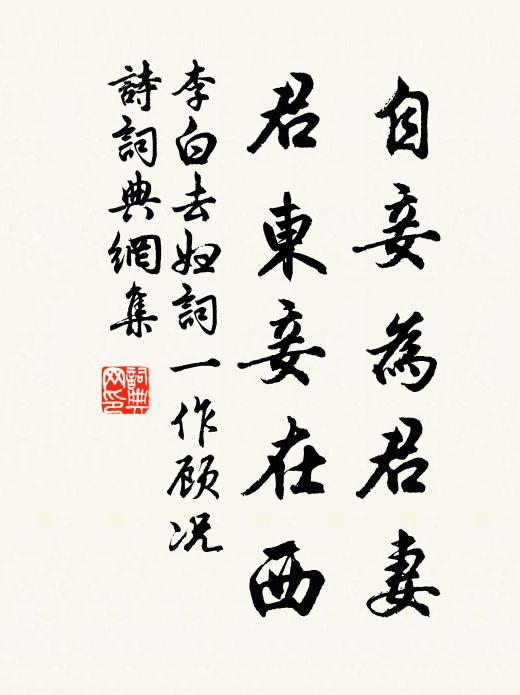 自妾為君妻
君東妾在西
李白去妇詞一作顾况
詩詞典網集
詞典
网印